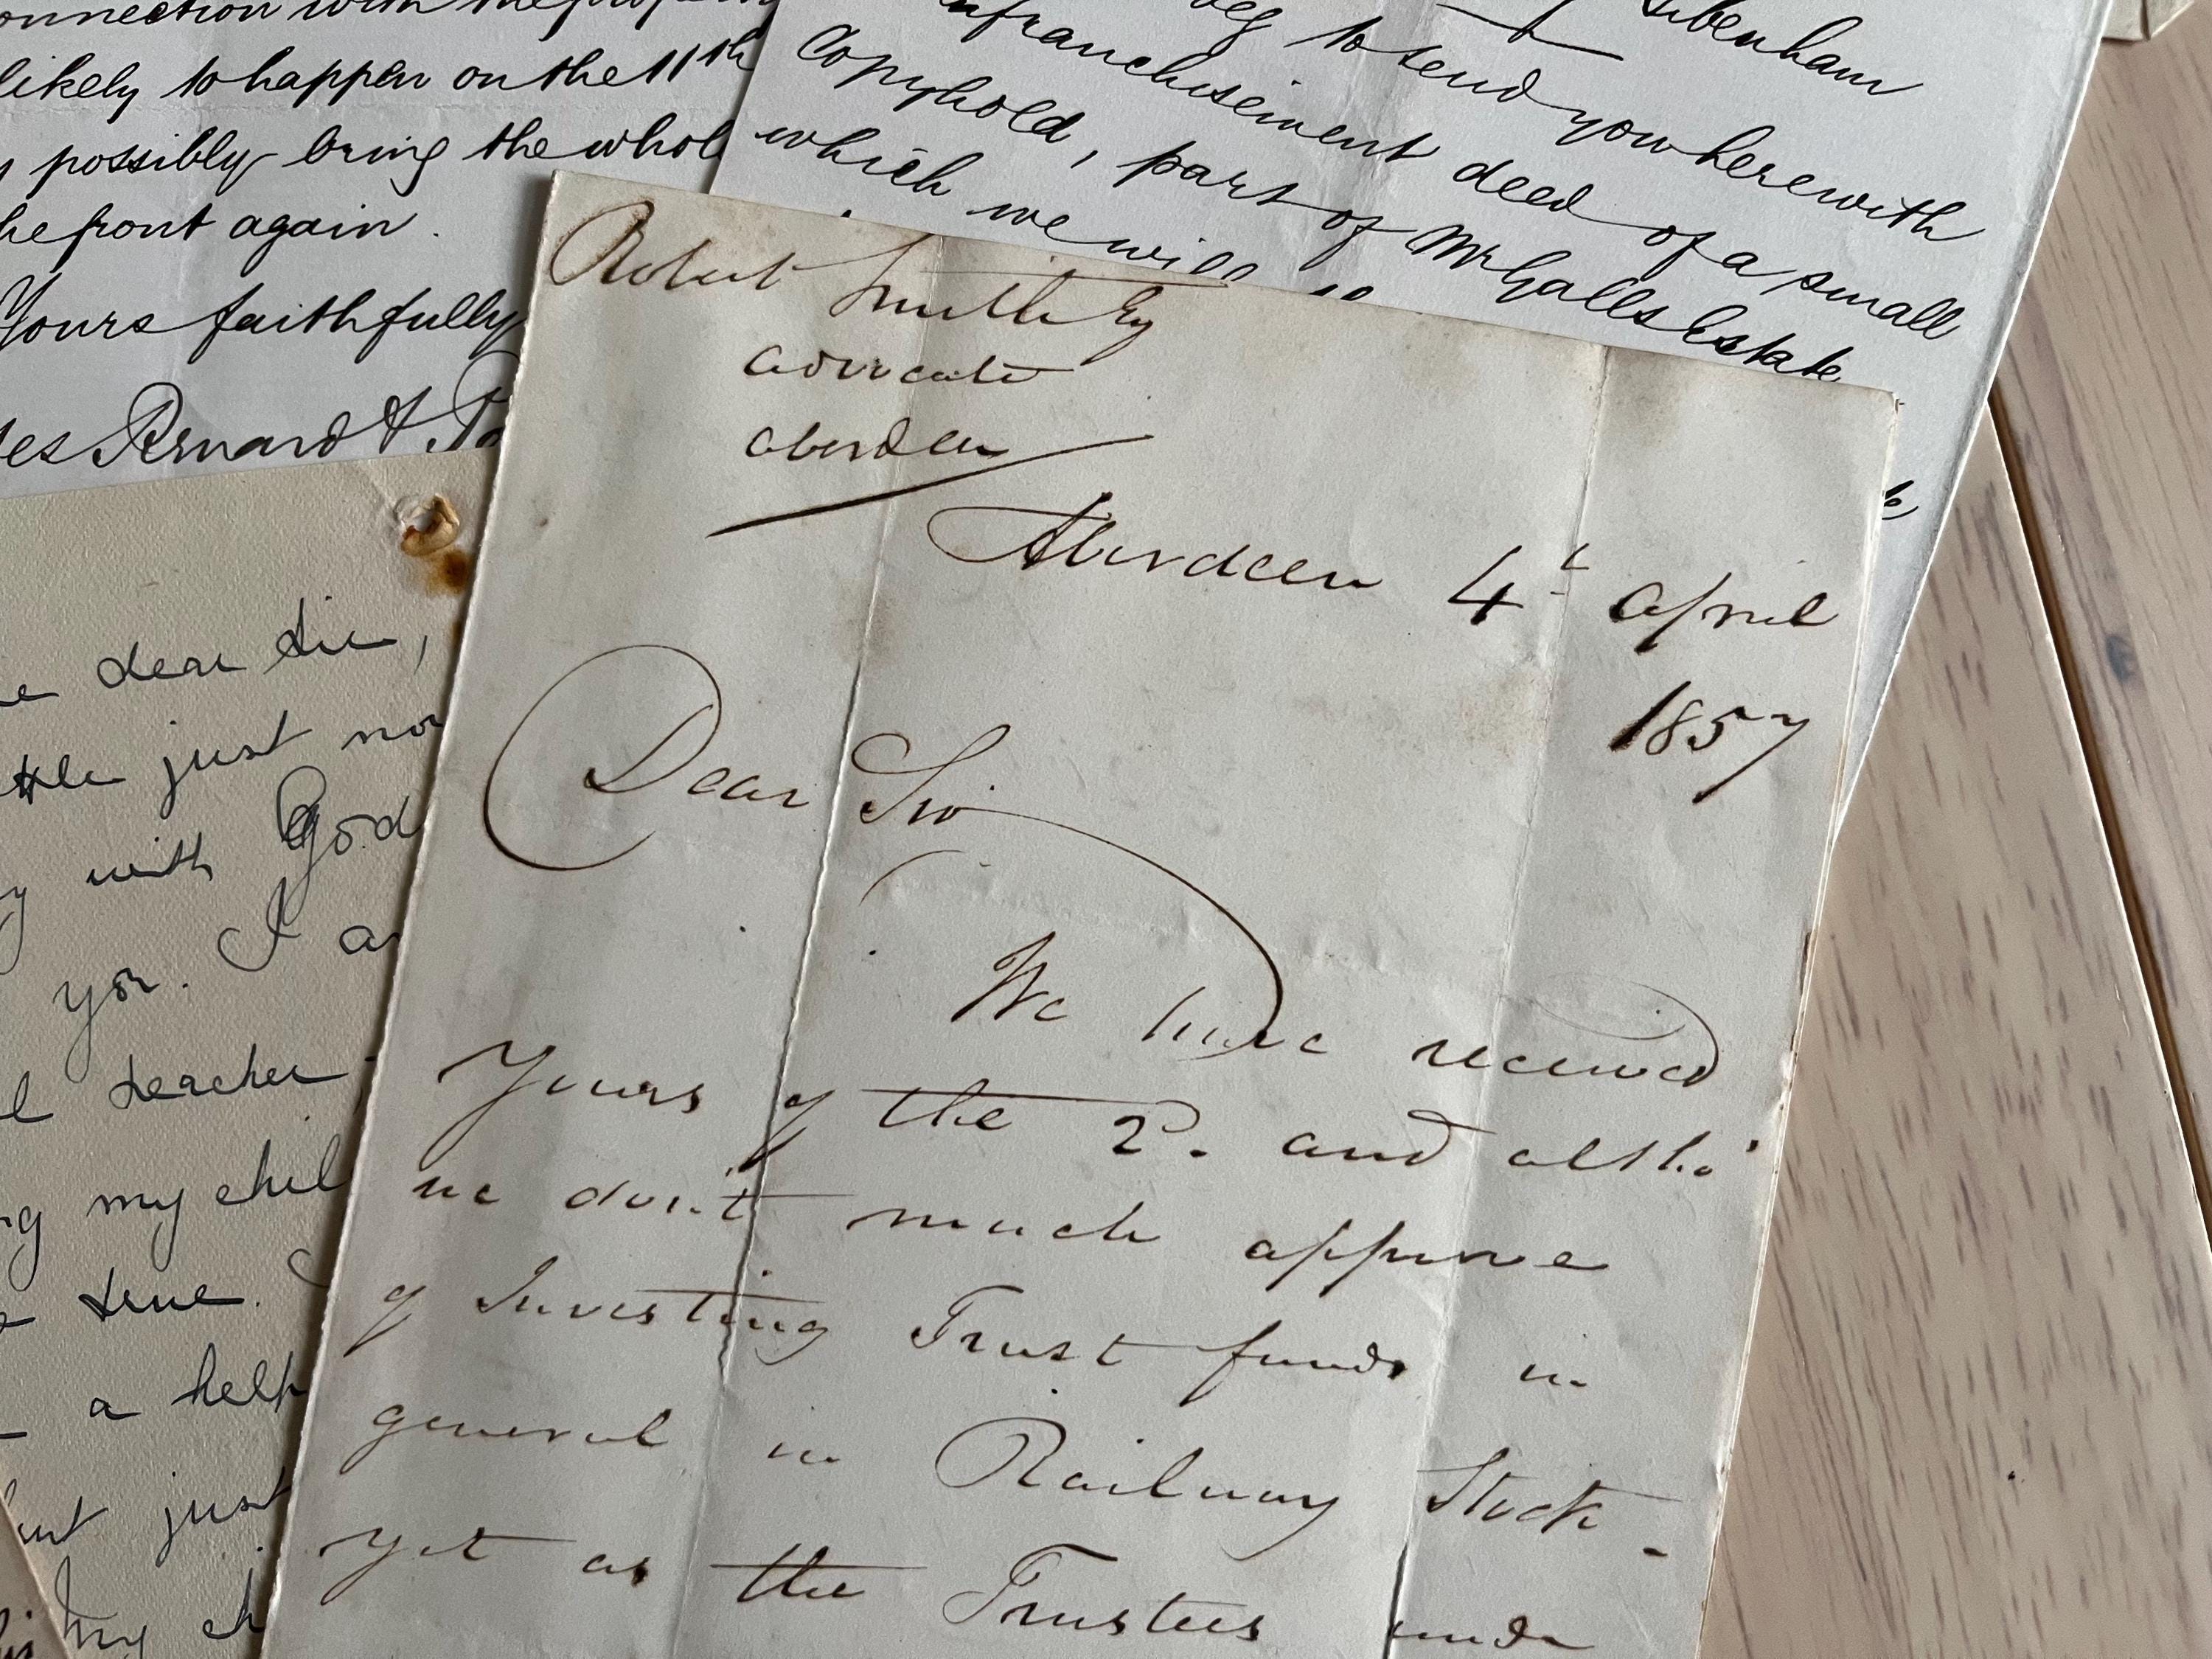 onnection with the
likely to happen on the 11th
possibly bring the whole
he front again.
Yours faithfully
es Bernard &
beg to send you herewith
enfranchisement deed of a small
Copyhold, part of Mr Galls Estate
which we will
Robert Smith Esq
advocate
aberdeen
Aberdeen 4th April
1857
Dear Sir
We have received
Yours of the 2d. and altho'
we don't much approve
of Investing Trust funds in
general in Railway Stock -
yet as the Trustees under
dear Sir,
ttle just no
with God
you. I a
teacher
my chil
true.
a help
just
my ch